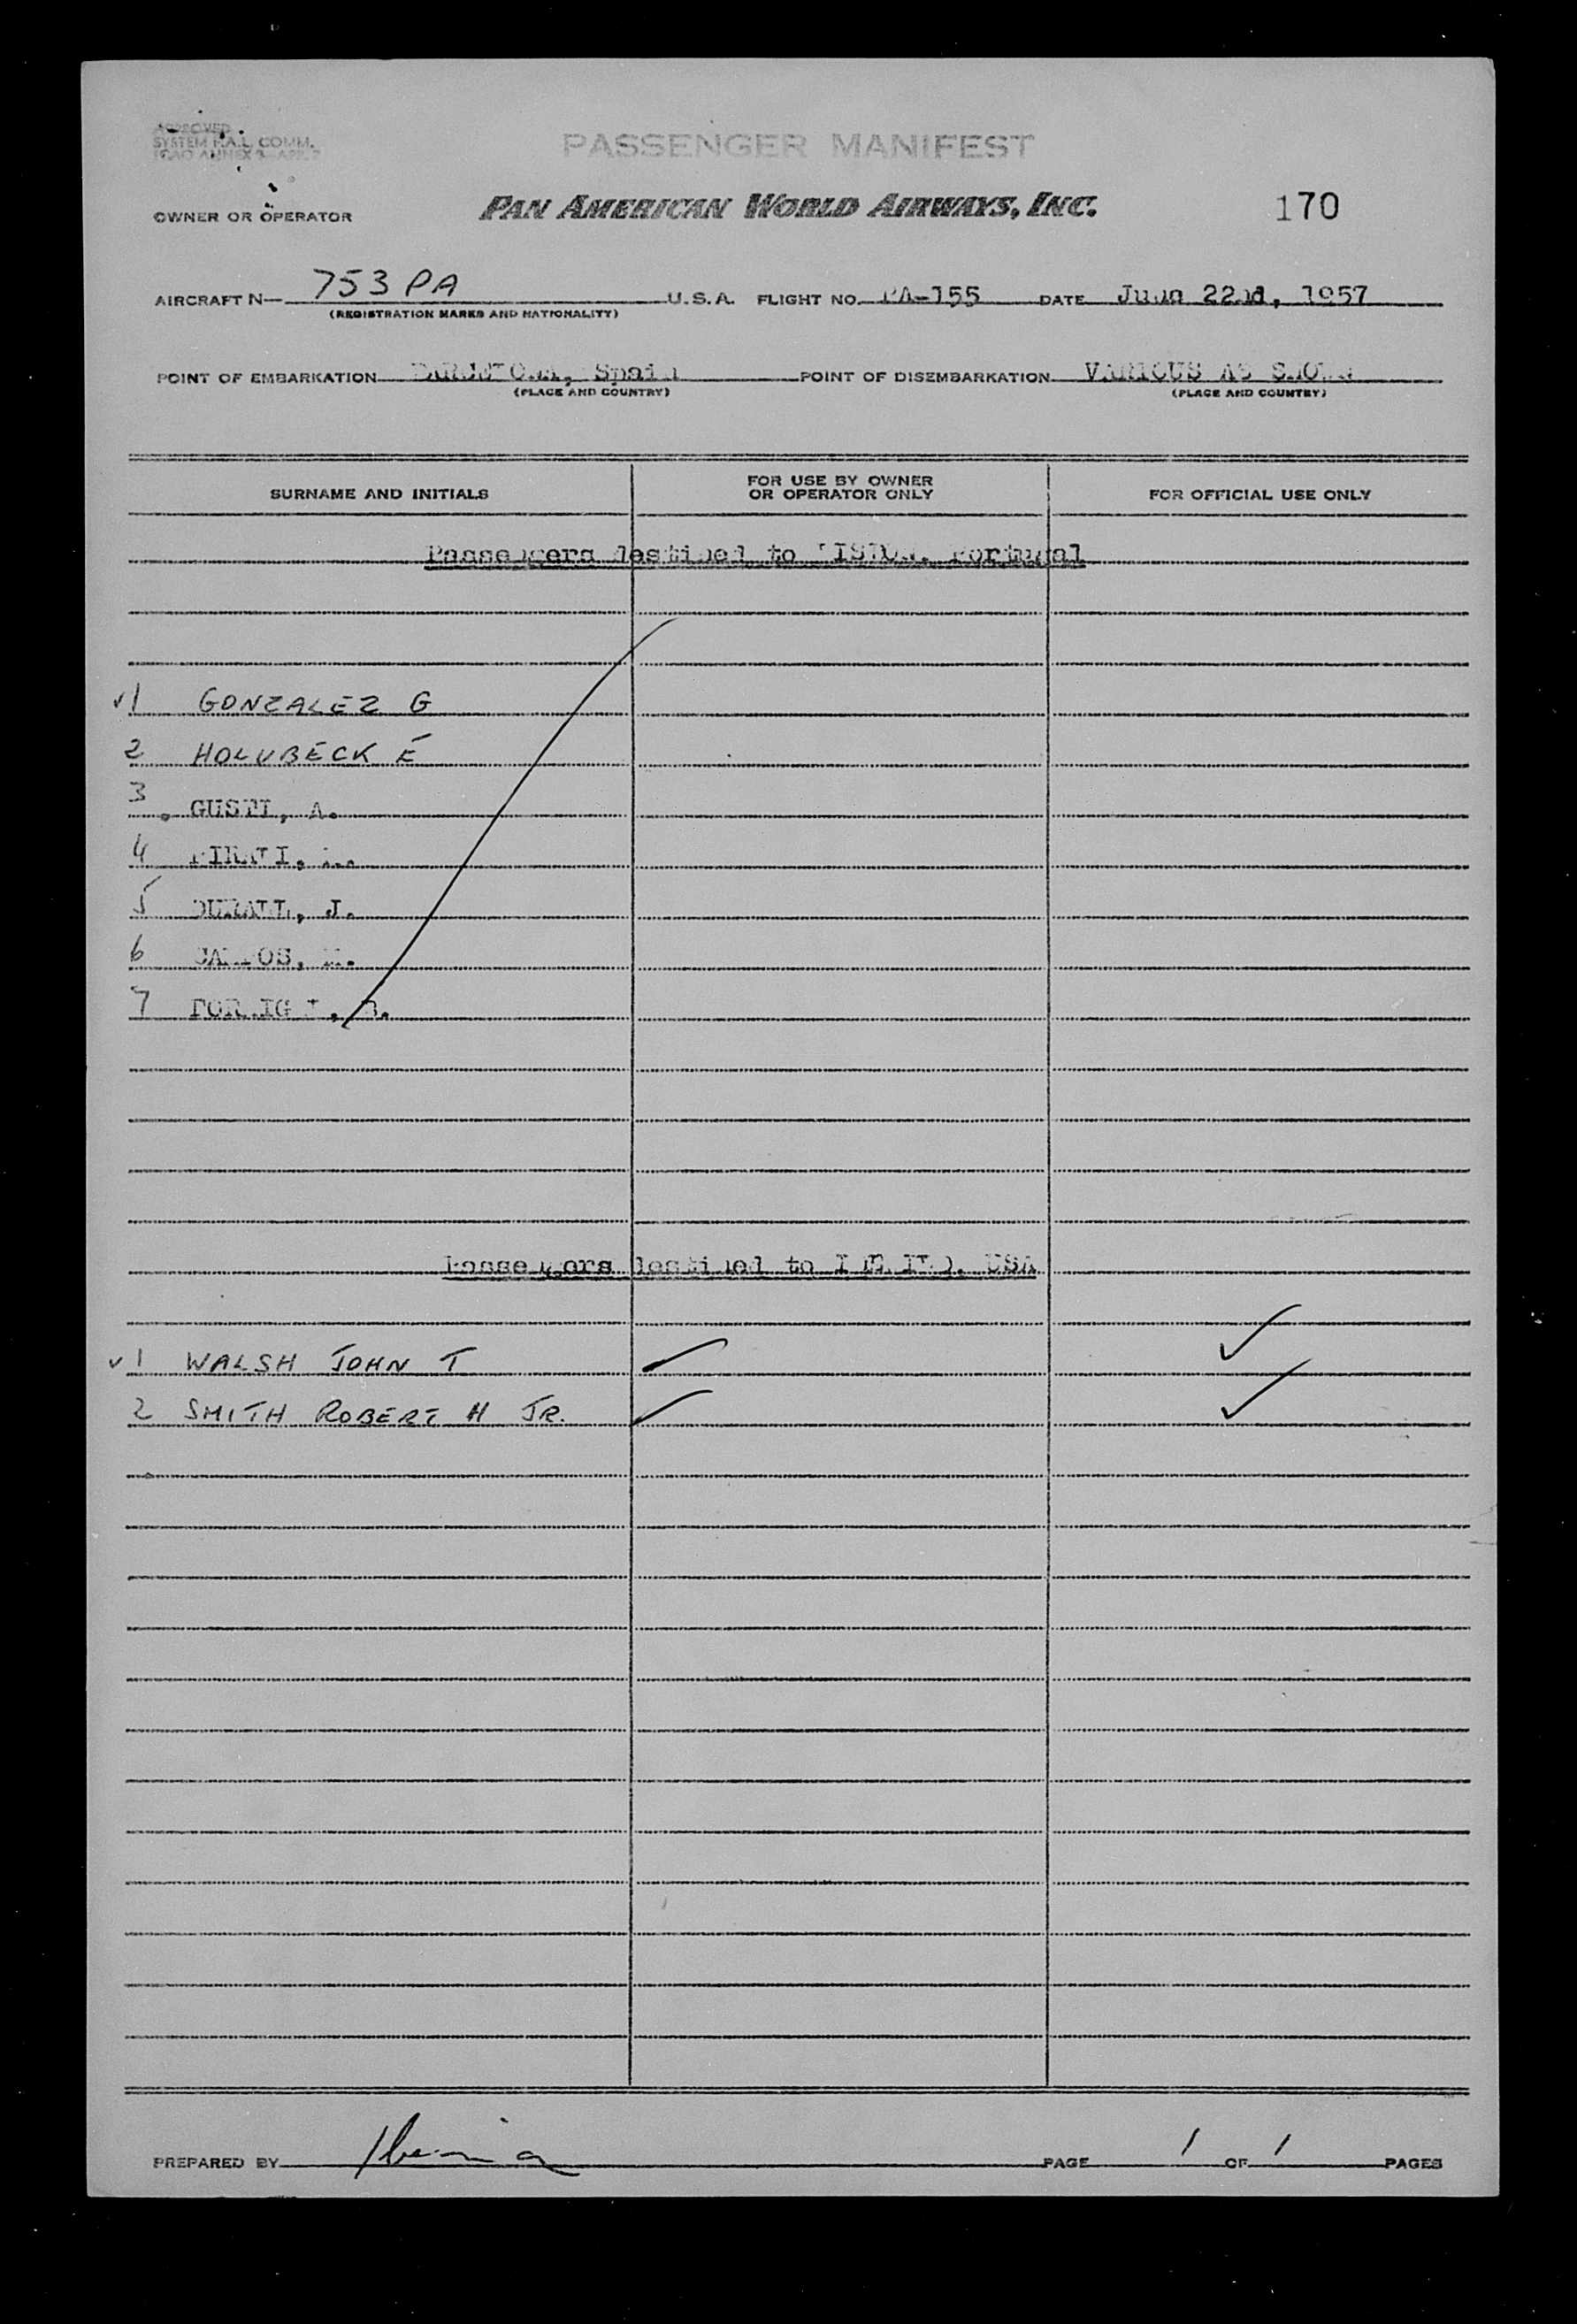 APPROVED
SYSTEM MAIL COMM.
ICAO ANNEX 9
PASSENGER MANIFEST
OWNER OR OPERATOR PAN AMERICAN WORLD AIRWAYS, INC. 170
AIRCRAFT N— 753 PA U.S.A. FLIGHT NO. PA-155 DATE 22nd, 1957
(REGISTRATION MARKS AND NATIONALITY)
POINT OF EMBARKATION Spain POINT OF DISEMBARKATION VARIOUS AS SHOWN
(PLACE AND COUNTRY) (PLACE AND COUNTRY)
SURNAME AND INITIALS FOR USE BY OWNER OR OPERATOR ONLY FOR OFFICIAL USE ONLY
Passengers destined to LISBON, Portugal
1 GONZALEZ G
2 HOLUBECK E
3 GUSTI, A.
4
5 J.
6
7
Passengers destined to USA
1 WALSH JOHN T
2 SMITH ROBERT H JR.
PREPARED BY Iberia PAGE 1 OF 1 PAGES